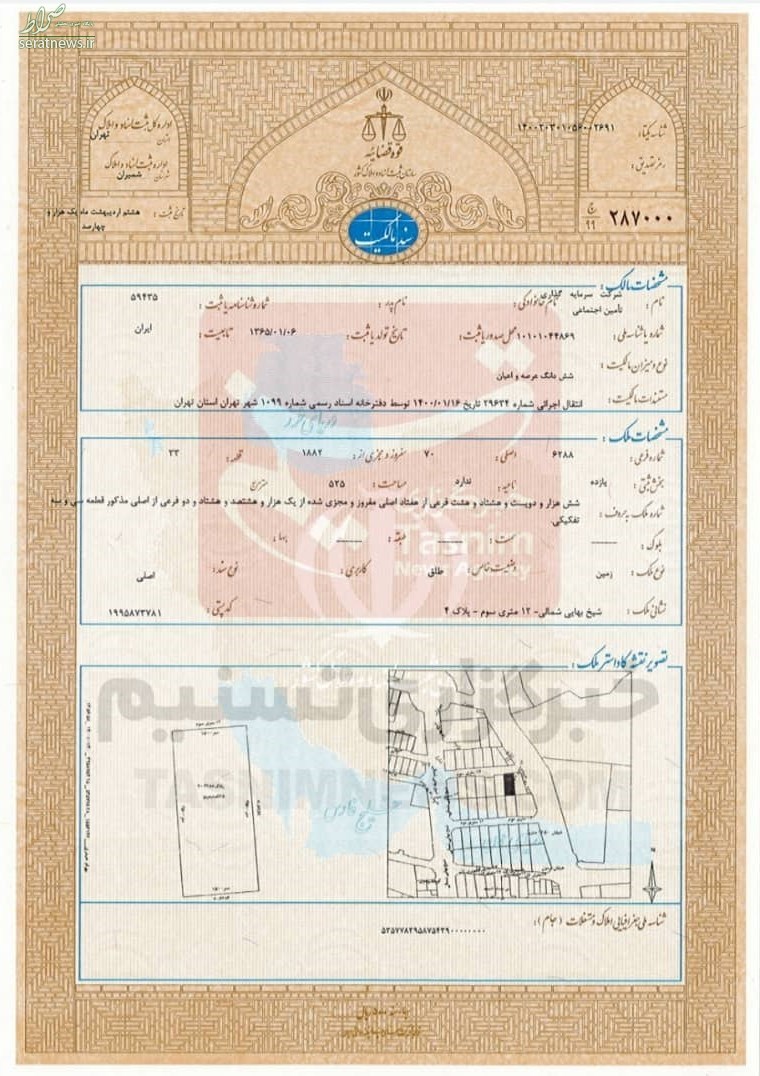 صراط
seratnews.ir
اداره کل ثبت اسناد و املاک
استان
تهران
اداره ثبت اسناد و املاک
شهرستان
شمیران
تاریخ ثبت : هشتم اردیبهشت ماه یک هزار و چهارصد
قوه قضائیه
سازمان ثبت اسناد و املاک کشور
سند مالکیت
شناسه یکتا : ۱۴۰۰۲۰۳۰۱۰۵۶۰۰۲۶۹۱
رمز تصدیق :
۲۸۷۰۰۰ ج ۹۹
مشخصات مالک :
نام : شرکت سرمایه گذاری تأمین اجتماعی نام خانوادگی : نام پدر : شماره شناسنامه یا ثبت : ۵۹۴۳۵
شماره یا شناسه ملی : ۱۰۱۰۱۰۴۴۸۶۹ محل صدور یا ثبت : تاریخ تولد یا ثبت : ۱۳۶۵/۰۱/۰۶ تابعیت : ایران
نوع و میزان مالکیت : شش دانگ عرصه و اعیان
مستندات مالکیت : انتقال اجرائی شماره ۲۹۶۳۴ تاریخ ۱۴۰۰/۰۱/۱۶ توسط دفترخانه اسناد رسمی شماره ۱۰۹۹ شهر تهران استان تهران
مشخصات ملک :
شماره فرعی : ۶۲۸۸ اصلی : ۷۰ مفروز و مجزی از : ۱۸۸۲ قطعه : ۳۳
بخش ثبتی : یازده ناحیه : ندارد مساحت : ۵۲۵ مترمربع
شماره ملک به حروف : شش هزار و دویست و هشتاد و هشت فرعی از هفتاد اصلی مفروز و مجزی شده از یک هزار و هشتصد و هشتاد و دو فرعی از اصلی مذکور قطعه سی و سه تفکیکی.
بلوک : سمت : طبقه : بها :
نوع ملک : زمین وضعیت خاص : طلق کاربری : نوع سند : اصلی
نشانی ملک : شیخ بهایی شمالی- ۱۲ متری سوم - پلاک ۴ کدپستی : ۱۹۹۵۸۷۳۷۸۱
خبرگزاری
Tasnim
News Agency
تصویر نقشه کاداستر ملک :
خبرگزاری تسنیم
TASNIMNEWS.COM
دریای خزر
خلیج فارس
شناسه ملی جغرافیایی املاک و مستغلات (جام) : ۵۳۵۷۷۸۲۹۵۸۷۵۴۲۹۰۰۰۰۰۰۰۰